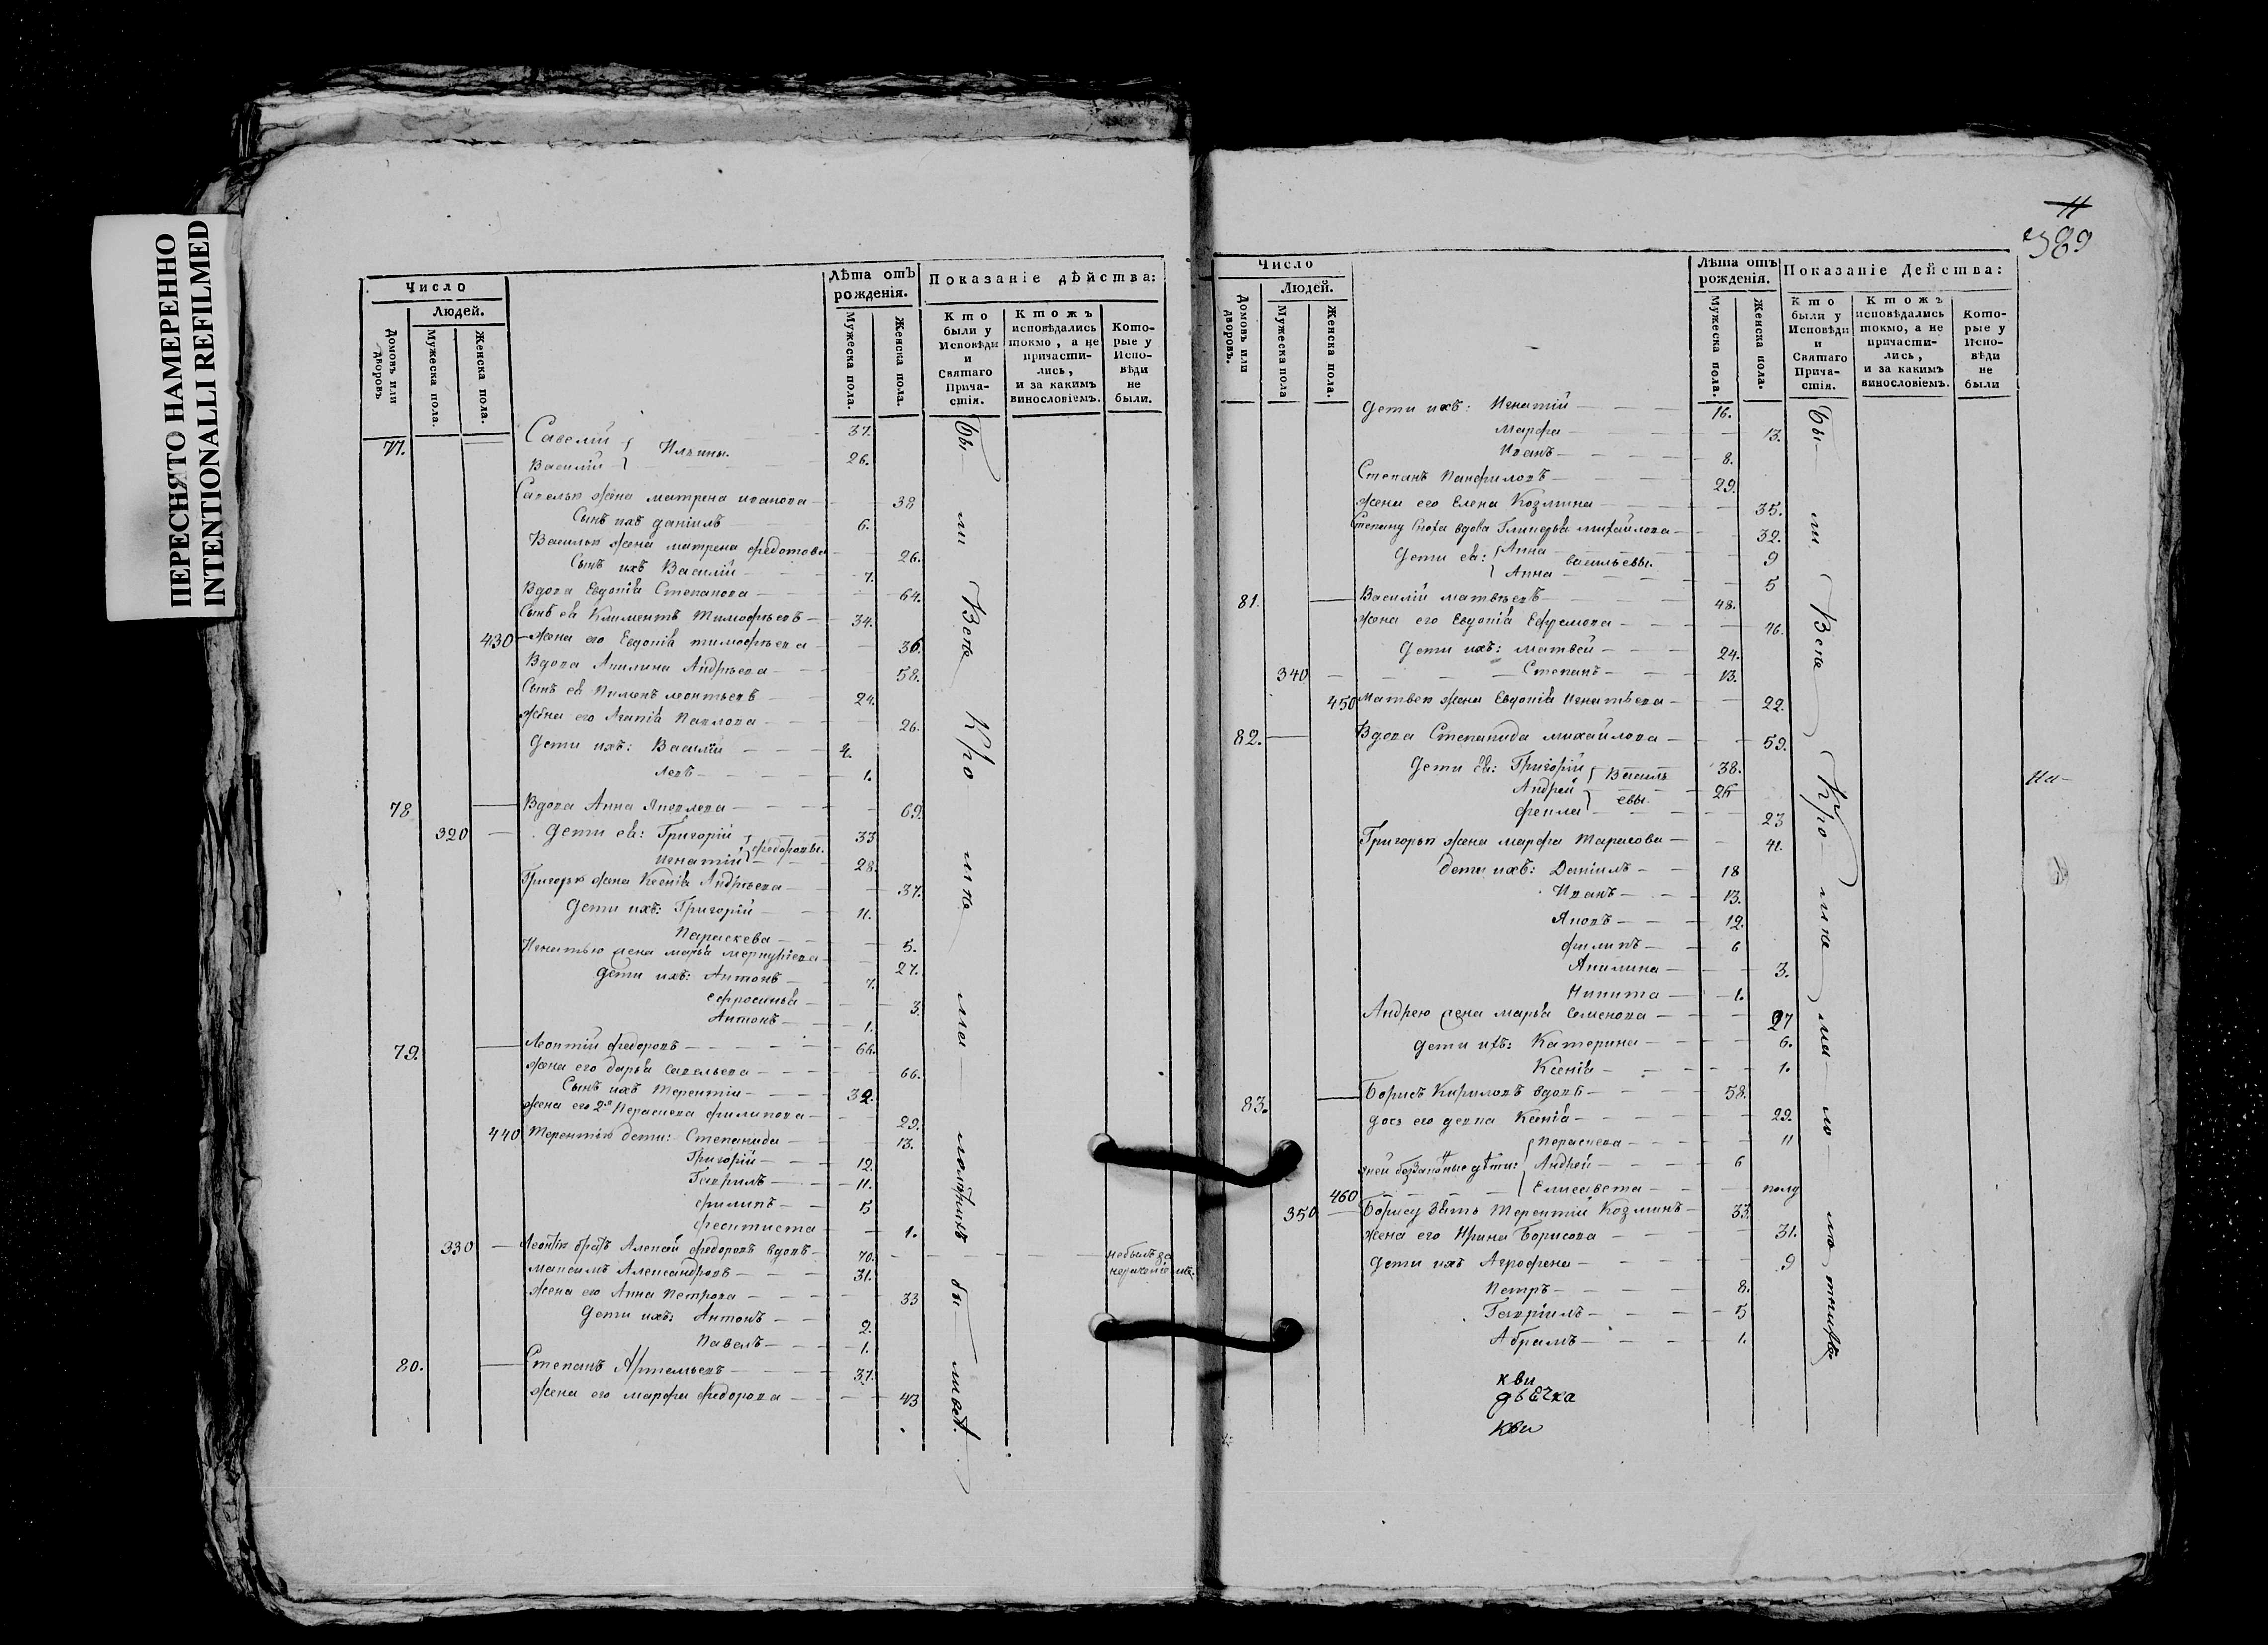 ПЕРЕСНЯТО НАМЕРЕННО
INTENTIONALLI REFILMED
Число
Людей.
Домовъ или дворовъ
Мужеска пола.
Женска пола.
Лѣта отъ рожденія.
Мужеска пола.
Женска пола.
Показаніе дѣйства:
Кто были у Исповѣди и Святаго Прича-стія.
Ктожъ исповѣдались токмо, а не причасти-лись, и за какимъ винословіемъ.
Кото-рые у Испо-вѣди не были.
77. Савелій } Ильины. 37.
Василій } 26.
Савелья жена матрена иванова 38
Сынъ ихъ даніилъ 6.
Василья жена матрена федотова 26.
Сынъ ихъ Василій 7.
Вдова Евдокія Степанова 64.
Сынъ ея Климентъ Тимофѣевъ 34.
430 жена его Евдокія тимофѣева 36.
Вдова Акилина Андрѣева 58.
Сынъ ея Пименъ леонтьевъ 24.
жена его Агапія Павлова 26.
Дети ихъ: Василій 2.
Левъ 1.
78 Вдова Анна Яковлева 69.
320 дети ея: Григорій } федоровы. 33
Игнатій } 28.
Григорья жена Ксенія Андрѣева 37.
Дети ихъ: Григорій 11.
Параскева 5.
Игнатью жена марья меркуріева 27.
дети ихъ: Антонъ 7.
Ефросинья 3.
Антонъ 1.
79. Леонтій федоровъ 66.
жена его дарья Савельева 66.
Сынъ ихъ Терентій 32.
жена его 2я Параскева филипова 29.
440 Терентія дети: Степанида 13.
Григорій 12.
Гаврилъ 11.
филипъ 5
феоктиста 1.
330 Леонтія братъ Алексѣй федоровъ вдовъ 70. небылъ за
максимъ Александровъ 31.
жена его Анна Петрова 33
Дети ихъ: Антонъ 2.
Павелъ 1.
80. Степанъ Артемьевъ 37.
жена его марфа федорова 43
Бы ли Всѣ Кро мѣ ма лолѣтнихъ
11
389
Число
Людей.
Домовъ или дворовъ.
Мужеска пола
Женска пола.
Лѣта отъ рожденія.
Мужеска пола.
Женска пола.
Показаніе Действа:
Кто были у Исповѣди и Святаго Прича-стія.
Ктожъ исповѣдались токмо, а не причасти-лись, и за какимъ винословіемъ.
Кото-рые у Испо-вѣди не были
Дети ихъ: Игнатій 16.
Марфа 13.
Иванъ 8.
Степанъ Панфиловъ 29.
жена его Елена Козмина 35.
Степану сноха вдова Гликерья михайлова 32.
Дети ея: { Анна васильевы. 9
{ Анна 5
81. Василій матвѣевъ 48.
жена его Евдокія Ефремова 46.
Дети ихъ: матвей 24.
340 Степанъ 13.
450 Матвея жена Евдокія Игнатьева 22.
82. Вдова Степанида михайлова 59.
Дети ея: Григорій } Василь 38.
Андрей } евы. 26
фекла 23
Григорья жена марфа Тарасова 41.
дети ихъ: Даніилъ 18
Иванъ 13.
Яковъ 12.
филипъ 6
Акилина 3.
Никита 1.
Андрею жена марья Семенова 27
Дети ихъ: Катерина 6.
Ксенія 1.
83. Борисъ Кириловъ вдовъ 58.
дочь его девка Ксенія 29.
{ Параскева 11
дѣти: { Андрей 6
460 { Елисавета полу
350 Борису зять Терентій Козминъ 33.
жена его Ирина Борисова 31.
Дети ихъ Агрофена 9
Петръ 8.
Гавріилъ 5
Абрамъ 1.
Бы ли Всѣ Кро мѣ ма ло лѣ тнихъ
На-
кви
дьечка
кви